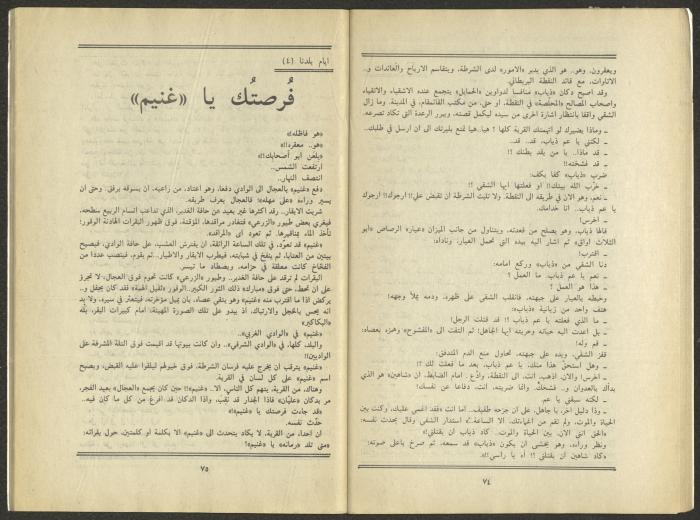 ويعقرون، وهو.. هو الذي يدير «الامور» لدى الشرطة، ويتقاسم الارباح والعائدات و..
الاتاوات، مع قائد النقطة البريطاني.
وقد اصبح دكان «ذياب» منافسا لدواوين «الحمايل» يتجمع عنده الاشقياء والاتقياء
واصحاب المصالح «المخلّصة» في النقطة، او حتى، من مكتب القائمقام، في المدينة. وما زال
الشقي واقفا بانتظار اشارة اخرى من سيده ليكمل قصته، ويبرر الرعدة التي تكاد تصرعه.
ـ وماذا يضيرك لو اتهمتك القرية كلها ؟ هيا.. هيا تمنع بليرتك الى ان ارسل في طلبك..
ـ لكني يا عم ذياب، قد.. قد..
ـ قد ماذا.. يا من بقد بطنك ؟!
ـ قد فشخته!!
ضرب «ذياب» كفا بكف:
ـ خرّب الله بيتك!! او فعلتها ايها الشقي ؟!
ـ نعم، وهو الان في طريقه الى النقطة. ولا تلبث الشرطة ان تقبض علي!! ارجوك!! ارجوك
يا عم ذياب.. انا خدامك.
ـ اخرس!
قالها ذياب، وهو يصلح من قعدته، ويتناول من جانب الميزان «عيار» الرصاص «ابو
الثلاث اواق» ثم اشار اليه بيده التي تحمل العيار، وناداه:
ـ اقترب!
دنا الشقي من «ذياب» وركع امامه:
ـ نعم يا عم ذياب. ما العمل ؟
ـ هذا هو العمل !
وخبطه بالعيار على جبهته، فانقلب الشقي على ظهره، ودمه يملأ وجهه!
هتف واحد من زبانية «ذياب»:
ـ ما الذي فعلته يا عم ذياب ؟! قد قتلت الرجل!
ـ بل اعدت اليه حياته وحريته ايها الجاهل! ثم التفت الى «المفشوخ» وهزه بعصاه:
ـ قم وله!
قفز الشقي، ويده على جبهته، تحاول منع الدم المتدفق:
ـ وهل استحق هذا منك، يا عم ذياب، بعد ما فعلت لك ؟!
ـ اخرس! والان، اذهب انت، الى النقطة، وادّع . امام الضابط، ان «شاهين» هو الذي
بدأك بالعدوان و.. فشخك، وانما ضربته، انت، دفاعا عن نفسك!
ـ لكنه سبقني يا عم.
ـ وذا دليل اخر، يا جاهل، على ان جرحه طفيف.. اما انت «فقد اغمي عليك، وكنت بين
الحياة والموت، ولم تفق من اغماءتك، الا الساعة.» استدار الشقي وقال يحدث نفسه:
«الحق انني الان، بين الحياة والموت.. كاد ذياب ان يقتلني!»
ونظر وراءه، وهو يخشى ان يكون «ذياب» قد سمعه، ثم صرخ باعلى صوته:
«كاد شاهين ان يقتلني !! اه يا راسي!!».
٧٤
ايام بلدنا (٤)
فُرصتُك يا «غنيم»
«هو فاظله!»
«هو.. معقره!!»
«يلعن ابو أصحابك!!»
ارتفعت الشمس..
انتصف النهار..
دفع «غنيم» بالعجال الى الوادي دفعا، وهو اعتاد، من راعيه، ان يسوقه برفق، وحتى ان
يسير وراءه «على مهله» فالعجال يعرف طريقه.
شربت الابقار.. رقد اكثرها غير بعيد عن حافة الغدير، الذي تداعب انسام الربيع سطحه،
فيغري بعض طيور «الزرعي» فتغادر مراقدها، المؤقتة، فوق ظهور البقرات الهادئة الوقور؛
تأخذ الماء بمناقيرها، ثم تعود الى «المراقد».
«غنيم» قد تعوّد، في تلك الساعة الرائقة، ان يفترش العشب، على حافة الوادي، فيصيح
ببيتين من العتابا، ثم ينفخ في شبابته، فيطرب الابقار والاطيار.. ثم يقوم، فينصب عددا من
الفخاخ كانت معلقة في حزامه، ويصطاد ما تيسر.
البقرات لم ترقد على حافة الغدير.. وطيور «الزرعي» كانت تحوم فوق العجال، لا تجرؤ
على ان تحط، حتى فوق «مبارك» ذلك الثور الكبير.. الوقور «ثقيل الهمة» فقد كان يجفل و..
يركض اذا ما اقترب منه «غنيم» وهو يتقي عصاه، بان يميل مؤخرته، فيتعثر في سيره، ولا بد
انه يحس بالخجل والارتباك، اذ يبدو على تلك الصورة المهينة؛ امام كبيرات البقر، بَلْه
«البكاكير»
«غنيم» في «الوادي الغربي»..
والبلد، كلها، في «الوادي الشرقي».. وان كانت بيوتها قد اقيمت فوق التلة المشرفة على
الواديين!!
«غنيم» يترقب ان يخرج عليه فرسان الشرطة، فوق خيولهم ليلقوا عليه القبض، ويصبح
اسم «غنيم» على كل لسان في القرية.
وهناك، من القرية، يتهم كل الناس، الا.. «غنيم»!! حين كان يجمع «العجال» بعيد الفجر،
مر بدكان «عليّان» فاذا الجدار قد نقب، واذا الدكان قد افرغ من كل ما كان فيه..
«قد جاءت فرصتك يا «غنيم»!»
حدّث نفسه.
ان احدا، من القرية، لا يكاد يتحدث الى «غنيم» الا بكلمة او كلمتين، حول بقراته:
«متى تلد «رمانه» يا «غنيم»؟!
٧٥